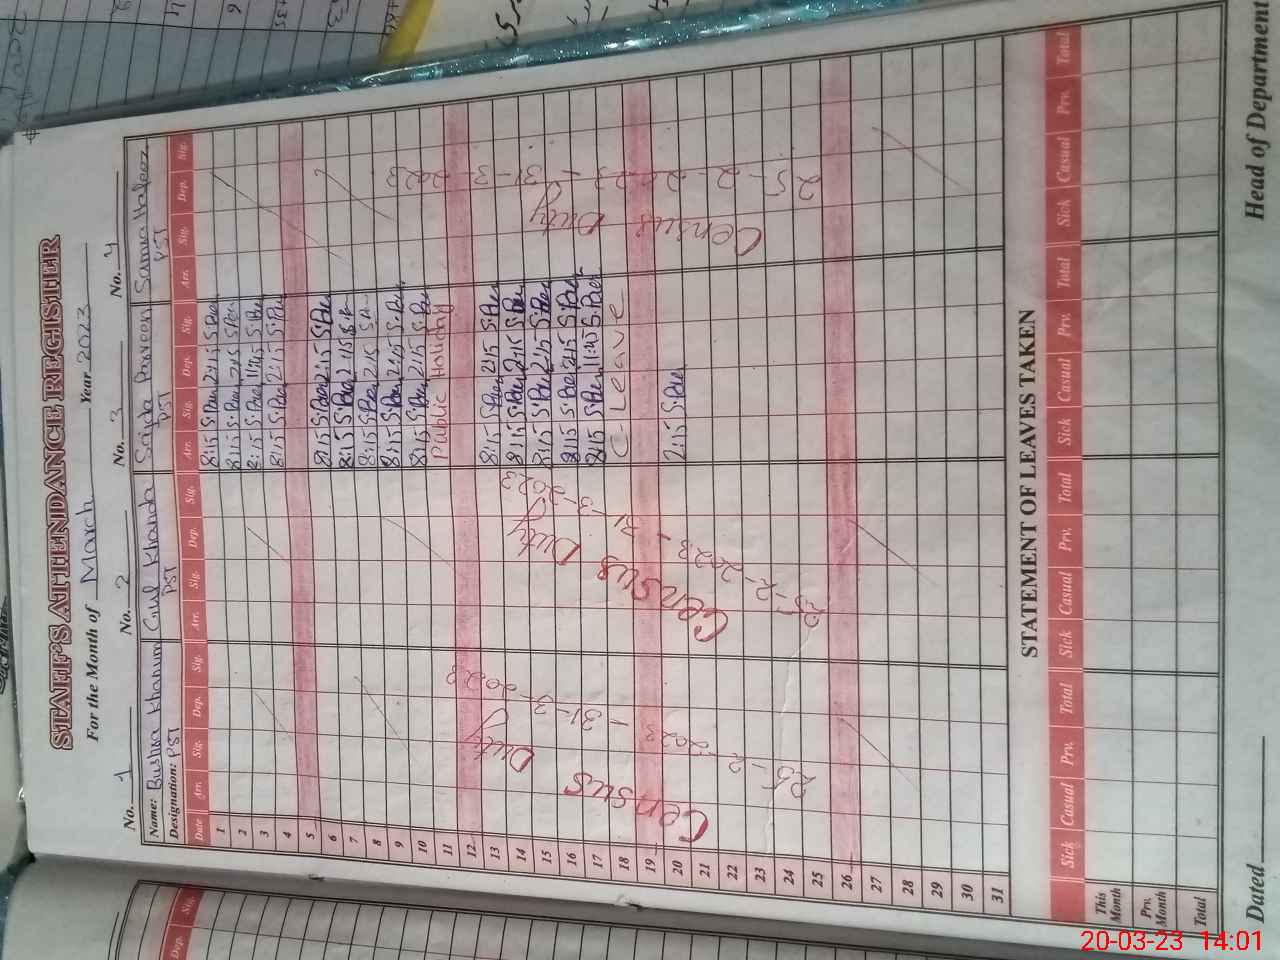 STAFF'S ATTENDANCE REGISTER
For the Month of March Year 2023
No. 1 No. 2 No. 3 No. 4
Name: Bushra Khanum Gul Khanda Sajda Parveen Samra Hafeez
Designation: PST PST PST PST
Date Arr. Sig. Dep. Sig. Arr. Sig. Dep. Sig. Arr. Sig. Dep. Sig. Arr. Sig. Dep. Sig.
1 8:15 2:15
2 8:15 2:15
3 8:15
4 8:15 2:15
5
6 8:15 2:15
7 8:15 2:15
8 8:15 2:15
9 8:15 2:15
10 8:15 2:15
11 Public Holiday
12
13 8:15 2:15
14 8:15 2:15
15 8:15 2:15
16 8:15 2:15
17 8:15
18 C-Leave
19
20 2:15
21
22
23
24
25
26
27
28
29
30
31
Census Duty
25-2-2023 - 31-3-2023
Census Duty
25-2-2023 - 31-3-2023
Census Duty
25-2-2023 - 31-3-2023
STATEMENT OF LEAVES TAKEN
Sick Casual Prv. Total Sick Casual Prv. Total Sick Casual Prv. Total Sick Casual Prv. Total
This Month
Prv. Month
Total
Dated Head of Department
Dep. Sig.
20-03-23 14:01